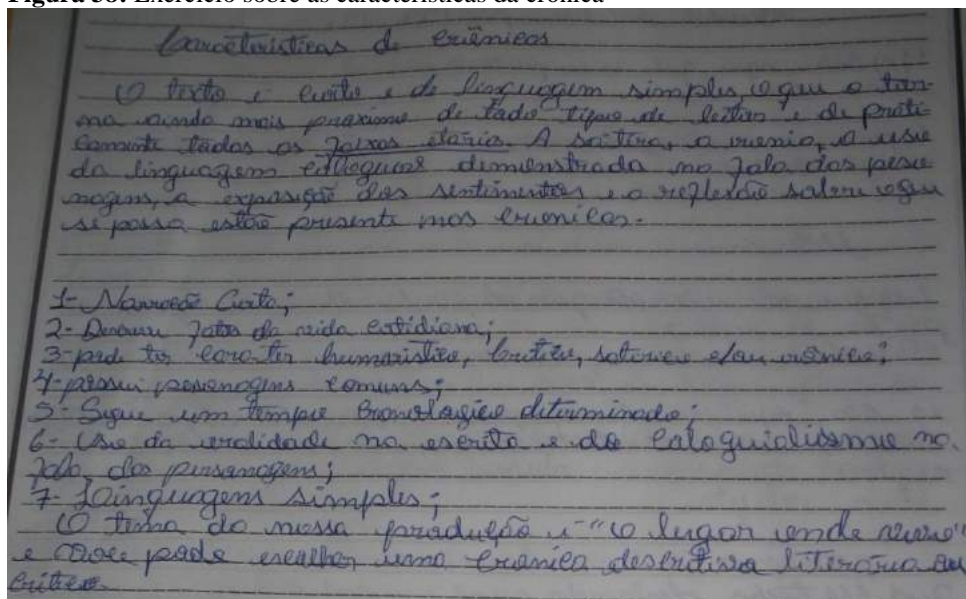 Figura 38: Exercício sobre as características da crônica
Caracteristicas de crônicas
O texto é curto e de linguagem simples o que o tor-
na ainda mais proximo de todo tipo de leitor e de prati-
camente todas as faixas etaria. A sátira, a ironia, o uso
da linguagem coloquial demonstrada na fala dos perso
nagens, a exposição dos sentimentos e a reflexão sobre o que
se passa estão presente nas cronicas.
1- Narração Curta;
2- Descreve fatos da vida cotidiana;
3- pode ter carater humoristico, critico, satirico e/ou irônico;
4- possui personagens comuns;
5- Segue um tempo Cronologico determinado;
6- Uso da oralidade na escrita e do coloquialismo na
fala das personagens;
7- Linguagem simples;
O tema da nossa produção é "O lugar onde vivo"
e você pode escolher uma cronica descritiva literária ou
critica.